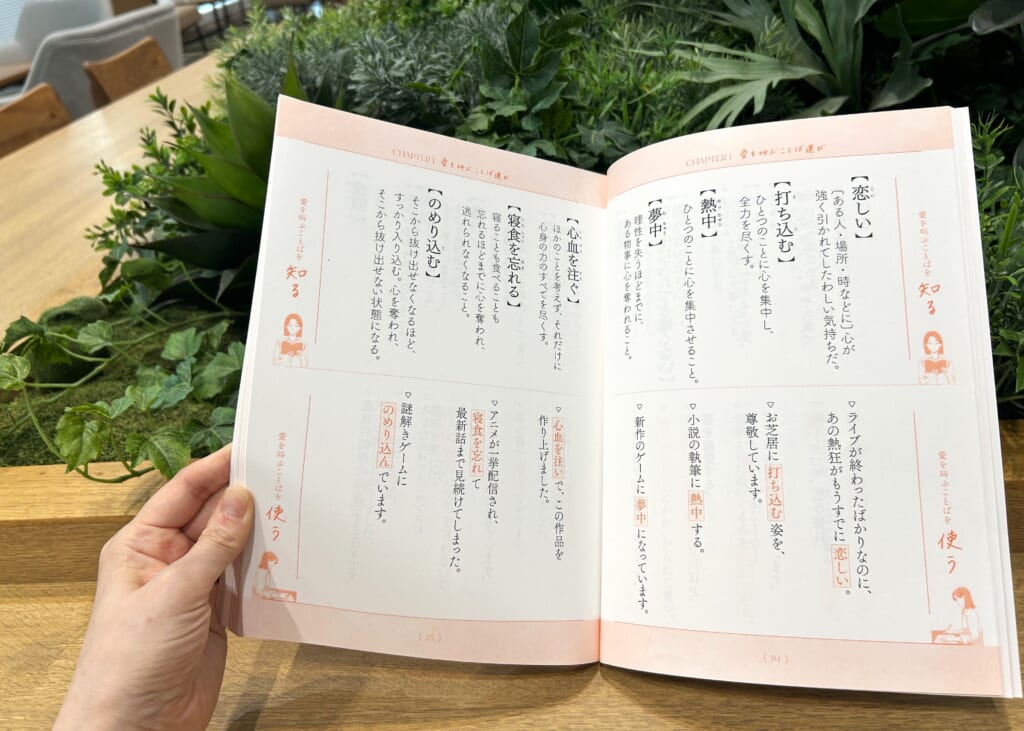 CHAPTER1 愛を叫ぶことば選び
愛を叫ぶことばを
知る
【恋しい】
〔ある人・場所・時などに〕心が
強く引かれてしたわしい気持ちだ。
【打ち込む】
ひとつのことに心を集中し、
全力を尽くす。
【熱中】
ひとつのことに心を集中させること。
【夢中】
理性を失うほどまでに、
ある物事に心を奪われること。
愛を叫ぶことばを
使う
▽ライブが終わったばかりなのに、
あの熱狂がもうすでに恋しい。
▽お芝居に打ち込む姿を、
尊敬しています。
▽小説の執筆に熱中する。
▽新作のゲームに夢中になっています。
(14)
CHAPTER1 愛を叫ぶことば選び
【心血を注ぐ】
ほかのことを考えず、それだけに
心身の力のすべてを尽くす。
【寝食を忘れる】
寝ることも食べることも
忘れるほどまでに心を奪われ、
逃れられなくなること。
【のめり込む】
そこから抜け出せなくなるほど、
すっかり入り込む。心を奪われ、
そこから抜け出せない状態になる。
愛を叫ぶことばを
知る
▽心血を注いで、この作品を
作り上げました。
▽アニメが一挙配信され、
寝食を忘れて
最新話まで見続けてしまった。
▽謎解きゲームに
のめり込んでいます。
愛を叫ぶことばを
使う
(15)